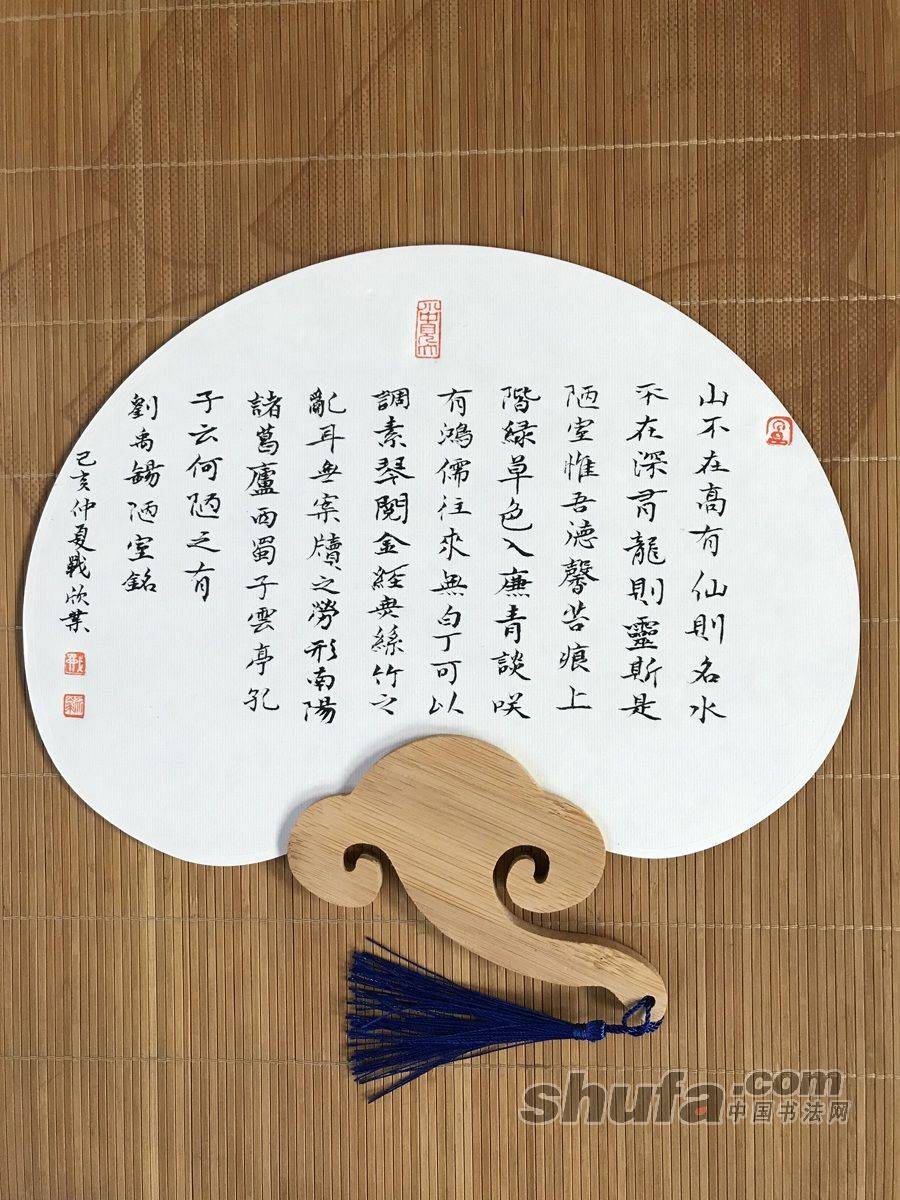 小中見大
山不在高有仙則名水
不在深有龍則靈斯是
陋室惟吾德馨苔痕上
階綠草色入廉青談咲
有鴻儒往來無白丁可以
調素琴閱金經無絲竹之
亂耳無案牘之勞形南陽
諸葛廬西蜀子雲亭孔
子云何陋之有
劉禹錫陋室銘
己亥仲夏戰欣
shufa.com
中国书法网